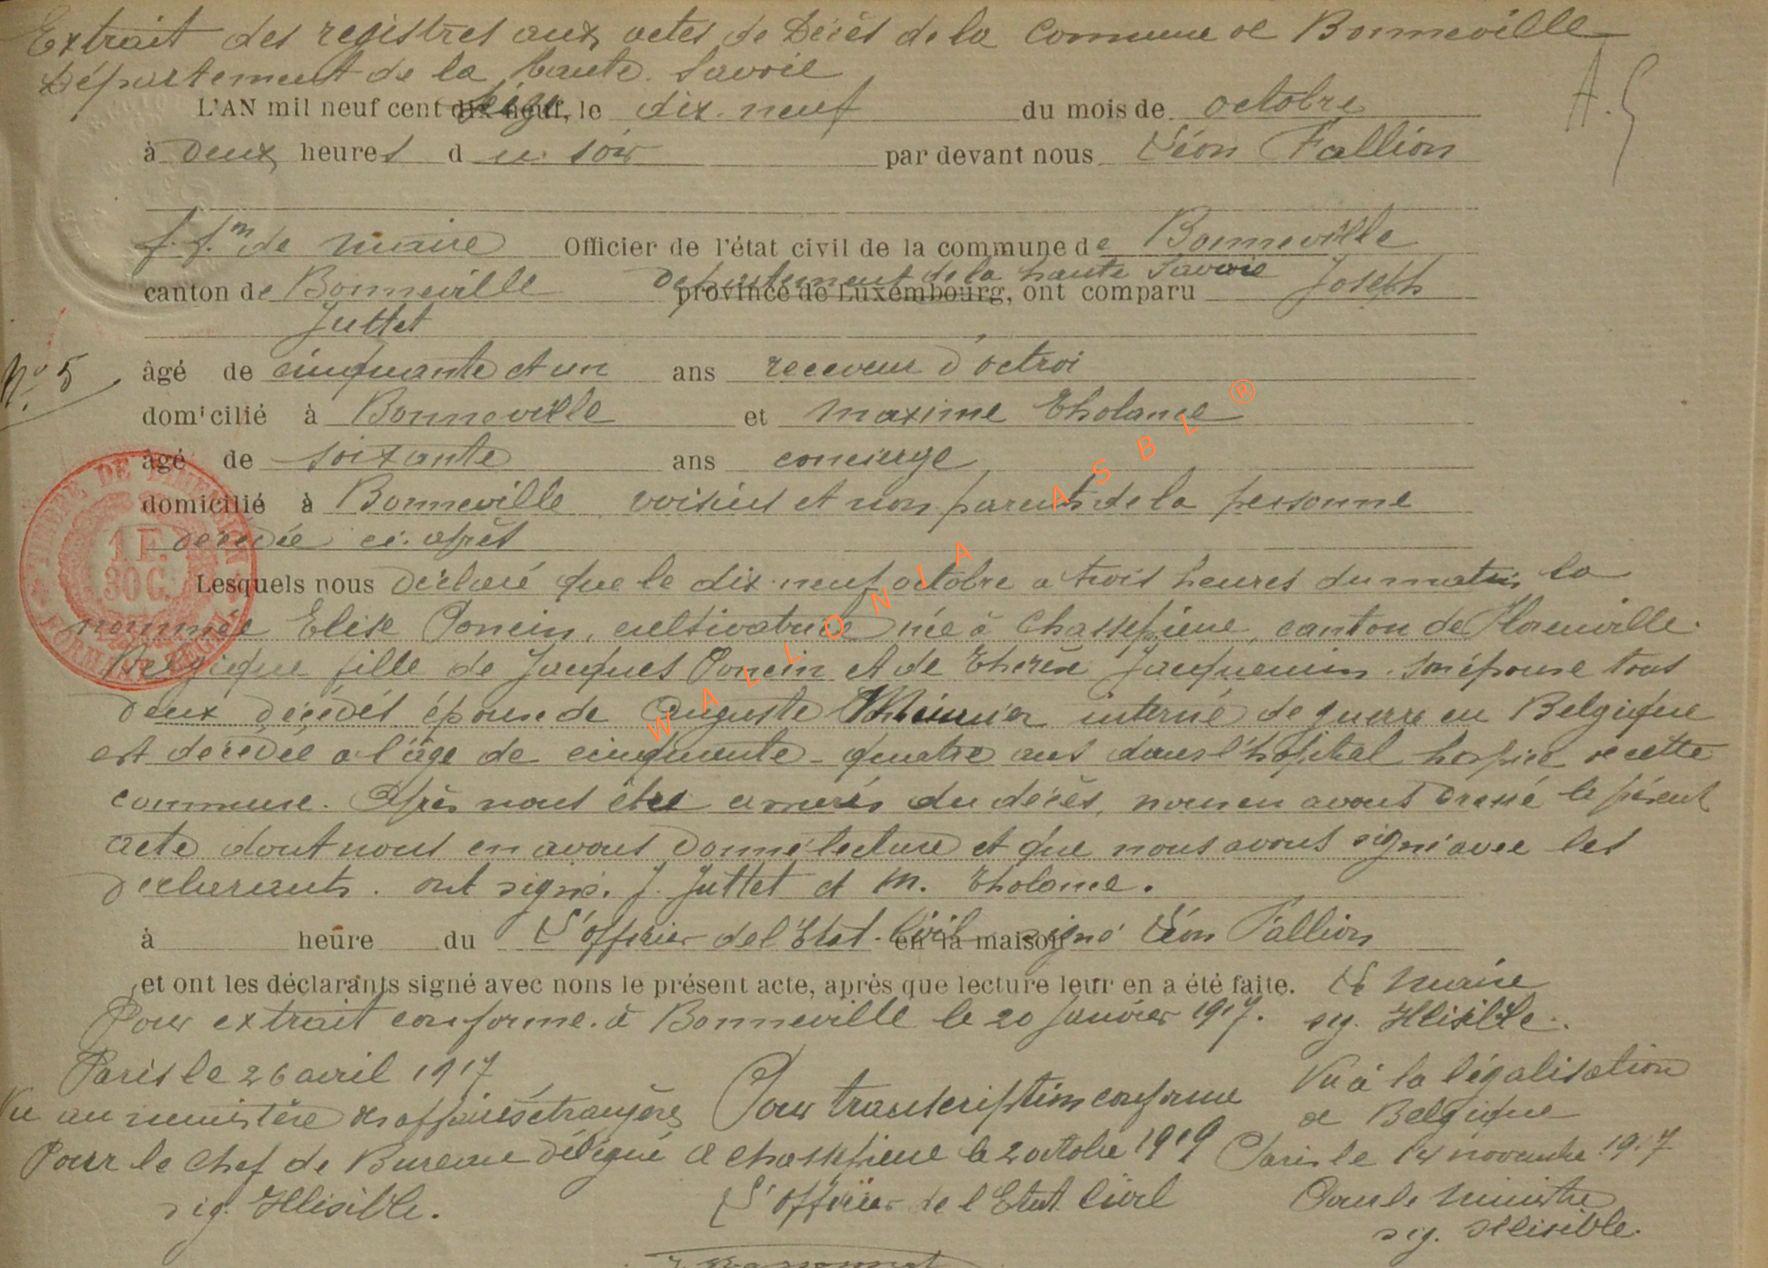 Extrait des registres aux actes de Décès de la Commune de Bonneville
Département de la haute Savoie
A. G
L'AN mil neuf cent dix-neuf, seize le dix-neuf du mois de octobre
à Deux heures du soir par devant nous Léon Fallion
f. f.on de maire Officier de l'état civil de la commune de Bonneville
Département de la haute Savoie
canton de Bonneville province de Luxembourg, ont comparu Joseph
Juttet
No. 5
âgé de cinquante et un ans receveur d'octroi
domicilié à Bonneville et Maxime Tholance
âgé de soixante ans concierge
domicilié à Bonneville voisins et non parents de la personne
décédée ci-après
TIMBRE DE DIMENSION
1 F.
30 C.
Lesquels nous déclaré que le dix-neuf octobre a trois heures du matin, la
nommée Elise Poncin, cultivatrice née à Chassepierre, canton de Florenville
Belgique fille de Jacques Poncin et de Therèse Jacquemin. son épouse tous
deux décédés épouse de Auguste Meunier interné de guerre en Belgique
est décédée a l'âge de cinquante-quatre ans dans l'hôpital hospice de cette
commune. Après nous être assurés du décès, nous en avons Dressé le présent
acte dont nous en avons Donné lecture et que nous avons signé avec les
déclarants. ont signé. J. Juttet et M. Tholance.
à heure du L'officier de l'Etat-Civil en la maison signé Léon Fallion
et ont les déclarants signé avec nons le présent acte, après que lecture leur en a été faite. Le Maire
Pour extrait conforme. à Bonneville le 20 Janvier 1917. sig. Illisible.
Paris le 26 avril 1917
Vu au ministère des affaires étrangères
Pour le Chef de Bureau Délégué
sig. Illisible.
Pour transcription conforme
A Chassepierre le 2 octobre 1919
L'officier de l'Etat Civil
Vu à la légalisation
de Belgique
Paris le 14 novembre 1917
Pour le Ministre
sig. Illisible.
WALLONIA ASBL ®